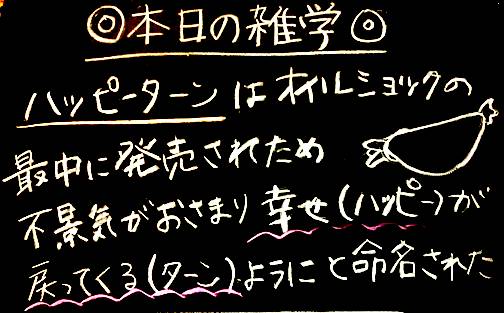 ◎本日の雑学◎
ハッピーターンはオイルショックの
最中に発売されたため
不景気がおさまり幸せ(ハッピー)が
戻ってくる(ターン)ようにと命名された